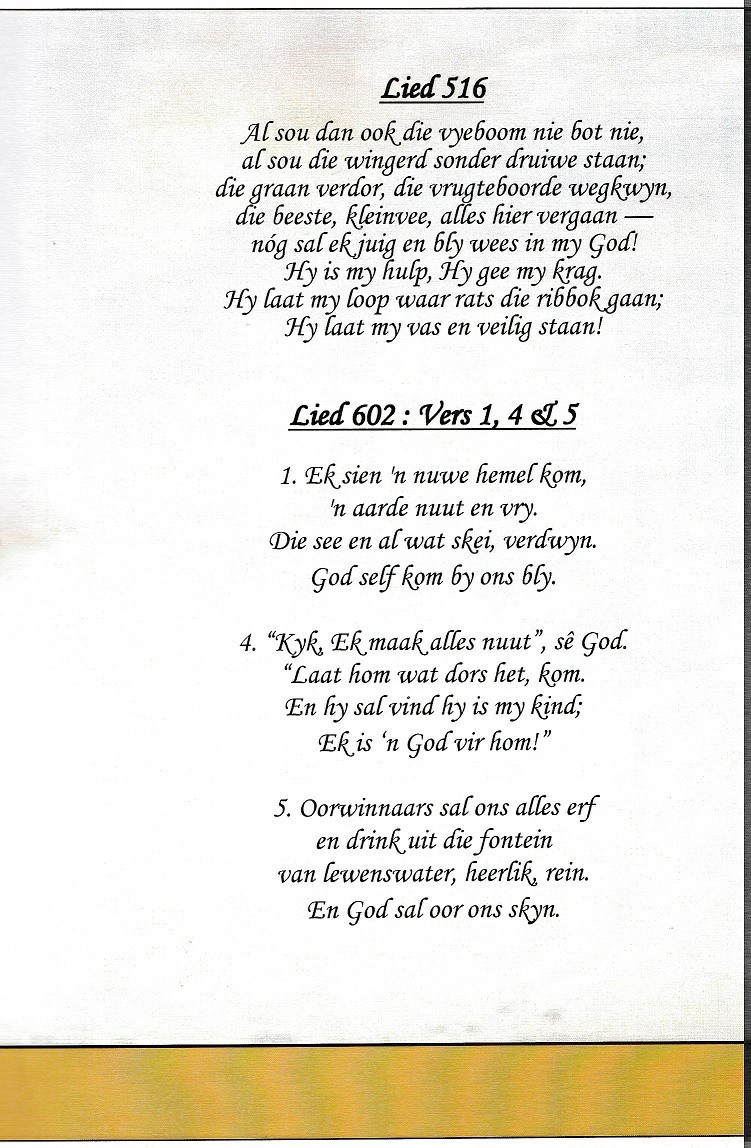 Lied 516
Al sou dan ook die vyeboom nie bot nie,
al sou die wingerd sonder druiwe staan;
die graan verdor, die vrugteboorde wegkwyn,
die beeste, kleinvee, alles hier vergaan —
nóg sal ek juig en bly wees in my God!
Hy is my hulp, Hy gee my krag.
Hy laat my loop waar rats die ribbok gaan;
Hy laat my vas en veilig staan!
Lied 602 : Vers 1, 4 & 5
1. Ek sien 'n nuwe hemel kom,
'n aarde nuut en vry.
Die see en al wat skei, verdwyn.
God self kom by ons bly.
4. “Kyk, Ek maak alles nuut”, sê God.
“Laat hom wat dors het, kom.
En hy sal vind hy is my kind;
Ek is ‘n God vir hom!”
5. Oorwinnaars sal ons alles erf
en drink uit die fontein
van lewenswater, heerlik, rein.
En God sal oor ons skyn.